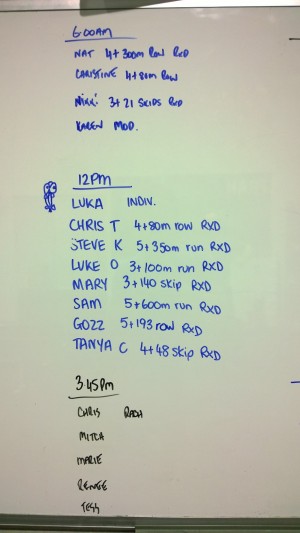 6:00AM
NAT 4+300m Row RxD
CHRISTINE 4+80m Row
Nikki 3+21 SKIPS RxD
KAREN MOD.
12PM
LUKA INDIV.
CHRIS T 4+80m row RXD
STEVE K 5+350m run RXD
LUKE O 3+100m run RXD
MARY 3+140 skip RXD
SAM 5+600m run RXD
GOZZ 5+193 row RXD
TANYA C 4+48 skip RXD
3:45pm
CHRIS RACH
MITCH
MARIE
RENEE
TESS